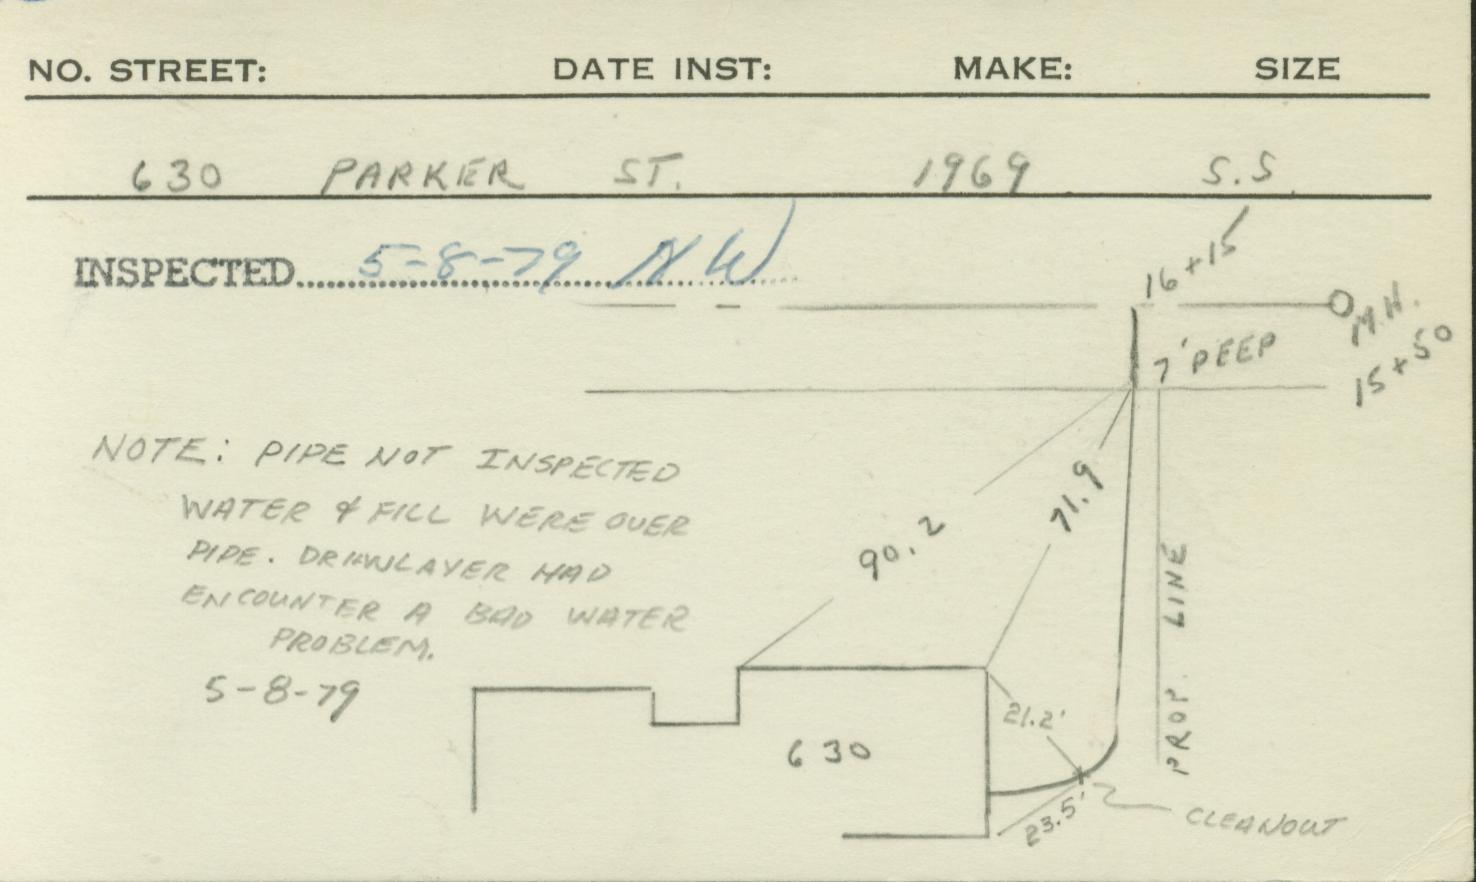 NO. STREET: DATE INST: MAKE: SIZE
630 PARKER ST. 1969 S.S.
INSPECTED 5-8-79 NW
16+15
M.H.
7' DEEP
15+50
NOTE: PIPE NOT INSPECTED
WATER & FILL WERE OVER
PIPE. DRAINLAYER HAD
ENCOUNTER A BAD WATER
PROBLEM.
5-8-79
90.2
71.9
PROP. LINE
21.2'
630
23.5'
CLEANOUT